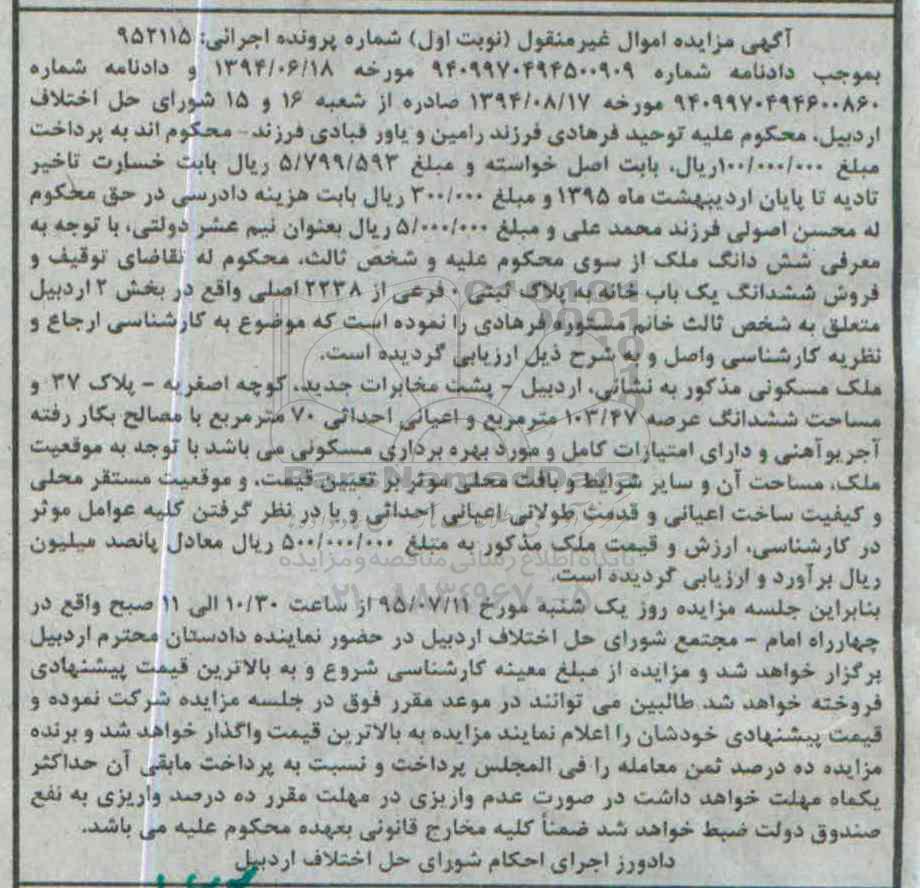 آگهی مزایده اموال غیرمنقول (نوبت اول) شماره پرونده اجرائی: ۹۵۲۱۱۵
بموجب دادنامه شماره ۹۴۰۹۹۷۰۴۹۴۵۰۰۹۰۹ مورخه ۱۳۹۴/۰۶/۱۸ و دادنامه شماره
۹۴۰۹۹۷۰۴۹۴۶۰۰۸۶۰ مورخه ۱۳۹۴/۰۸/۱۷ صادره از شعبه ۱۶ و ۱۵ شورای حل اختلاف
اردبیل، محکوم علیه توحید فرهادی فرزند رامین و یاور قبادی فرزند- محکوم اند به پرداخت
مبلغ ۱۰۰/۰۰۰/۰۰۰ریال، بابت اصل خواسته و مبلغ ۵/۷۹۹/۵۹۳ ریال بابت خسارت تاخیر
تادیه تا پایان اردیبهشت ماه ۱۳۹۵ و مبلغ ۳۰۰/۰۰۰ ریال بابت هزینه دادرسی در حق محکوم
له محسن اصولی فرزند محمد علی و مبلغ ۵/۰۰۰/۰۰۰ ریال بعنوان نیم عشر دولتی، با توجه به
معرفی شش دانگ ملک از سوی محکوم علیه و شخص ثالث، محکوم له تقاضای توقیف و
فروش ششدانگ یک باب خانه به پلاک ثبتی ۰ فرعی از ۲۲۳۸ اصلی واقع در بخش ۲ اردبیل
متعلق به شخص ثالث خانم مستوره فرهادی را نموده است که موضوع به کارشناسی ارجاع و
نظریه کارشناسی واصل و به شرح ذیل ارزیابی گردیده است.
ملک مسکونی مذکور به نشانی، اردبیل - پشت مخابرات جدید، کوچه اصغریه - پلاک ۳۷ و
مساحت ششدانگ عرصه ۱۰۳/۴۷ مترمربع و اعیانی احداثی ۷۰ مترمربع با مصالح بکار رفته
آجریوآهنی و دارای امتیازات کامل و مورد بهره برداری مسکونی می باشد با توجه به موقعیت
ملک، مساحت آن و سایر شرایط و بافت محلی موثر بر تعیین قیمت، و موقعیت مستقر محلی
و کیفیت ساخت اعیانی و قدمت طولانی اعیانی احداثی و با در نظر گرفتن کلیه عوامل موثر
در کارشناسی، ارزش و قیمت ملک مذکور به مبلغ ۵۰۰/۰۰۰/۰۰۰ ریال معادل پانصد میلیون
ریال برآورد و ارزیابی گردیده است.
بنابراین جلسه مزایده روز یک شنبه مورخ ۹۵/۰۷/۱۱ از ساعت ۱۰/۳۰ الی ۱۱ صبح واقع در
چهارراه امام - مجتمع شورای حل اختلاف اردبیل در حضور نماینده دادستان محترم اردبیل
برگزار خواهد شد و مزایده از مبلغ معینه کارشناسی شروع و به بالاترین قیمت پیشنهادی
فروخته خواهد شد. طالبین می توانند در موعد مقرر فوق در جلسه مزایده شرکت نموده و
قیمت پیشنهادی خودشان را اعلام نمایند مزایده به بالاترین قیمت واگذار خواهد شد و برنده
مزایده ده درصد ثمن معامله را فی المجلس پرداخت و نسبت به پرداخت مابقی آن حداکثر
یکماه مهلت خواهد داشت در صورت عدم واریزی در مهلت مقرر ده درصد واریزی به نفع
صندوق دولت ضبط خواهد شد ضمناً کلیه مخارج قانونی بعهده محکوم علیه می باشد.
دادورز اجرای احکام شورای حل اختلاف اردبیل
ParsNamadData
پایگاه اطلاع رسانی مناقصه و مزایده
۰۲۱-۸۸۳۴۹۶۷۰-۵